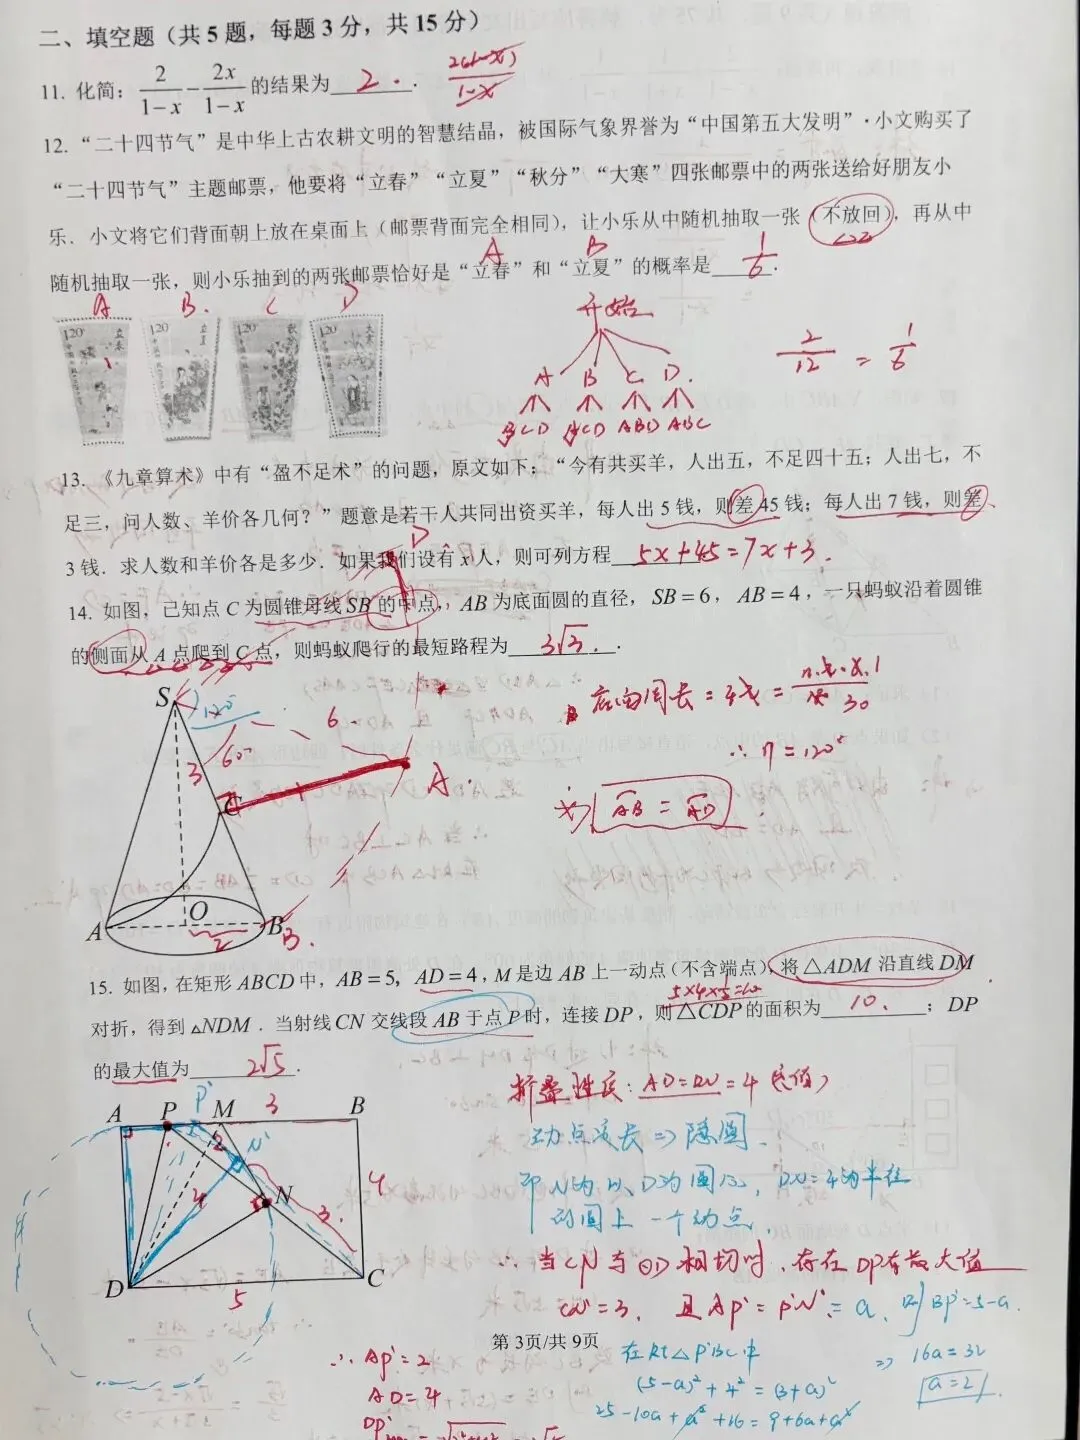 二、填空题（共5题，每题3分，共15分）
11. 化简：2/(1-x) - 2x/(1-x) 的结果为 2 .
2(1-x)/(1-x)
12. “二十四节气”是中华上古农耕文明的智慧结晶，被国际气象界誉为“中国第五大发明”·小文购买了
“二十四节气”主题邮票，他要将“立春”“立夏”“秋分”“大寒”四张邮票中的两张送给好朋友小
乐．小文将它们背面朝上放在桌面上（邮票背面完全相同），让小乐从中随机抽取一张（不放回），再从中
A B
随机抽取一张，则小乐抽到的两张邮票恰好是“立春”和“立夏”的概率是 1/6 .
A B. C D
120 120 120 120
开始
A B C D.
BCD ACD ABD ABC
2/12 = 1/6
13. 《九章算术》中有“盈不足术”的问题，原文如下：“今有共买羊，人出五，不足四十五；人出七，不
足三，问人数、羊价各几何？”题意是若干人共同出资买羊，每人出 5 钱，则差 45 钱；每人出 7 钱，则差
3 钱．求人数和羊价各是多少．如果我们设有 x 人，则可列方程 5x+45=7x+3 .
D
14. 如图，已知点 C 为圆锥母线 SB 的中点，AB 为底面圆的直径，SB=6，AB=4，一只蚂蚁沿着圆锥
的侧面从 A 点爬到 C 点，则蚂蚁爬行的最短路程为 3√3 .
S
120°
6
60°
3
C
A
A O B
2 B.
底面周长=4π=
∴ n=120°
AB = AD
15. 如图，在矩形 ABCD 中，AB=5，AD=4，M 是边 AB 上一动点（不含端点），将△ADM 沿直线 DM
5×4×1/2=10
对折，得到 △NDM．当射线 CN 交线段 AB 于点 P 时，连接 DP，则△CDP 的面积为 10. ；DP
的最大值为 2√5 .
P'
A P M 3 B
2 N'
4 N 4
3.
D 5 C
折叠性质：AD=DN=4（定值）
动点定长⇒隐圆.
即 N为以D为圆心，DN=4为半径
的圆上一个动点.
∴ 当CN与⊙D相切时，存在DP有最大值
CN'=3. 且AP'=P'N'=a. 则BP'=5-a.
第 3页/共 9页
∴ AP'=2
AD=4
在Rt△P'BC中
(5-a)²+4²=(3+a)²
25-10a+a²+16=9+6a+a²
⇒ 16a=32
a=2